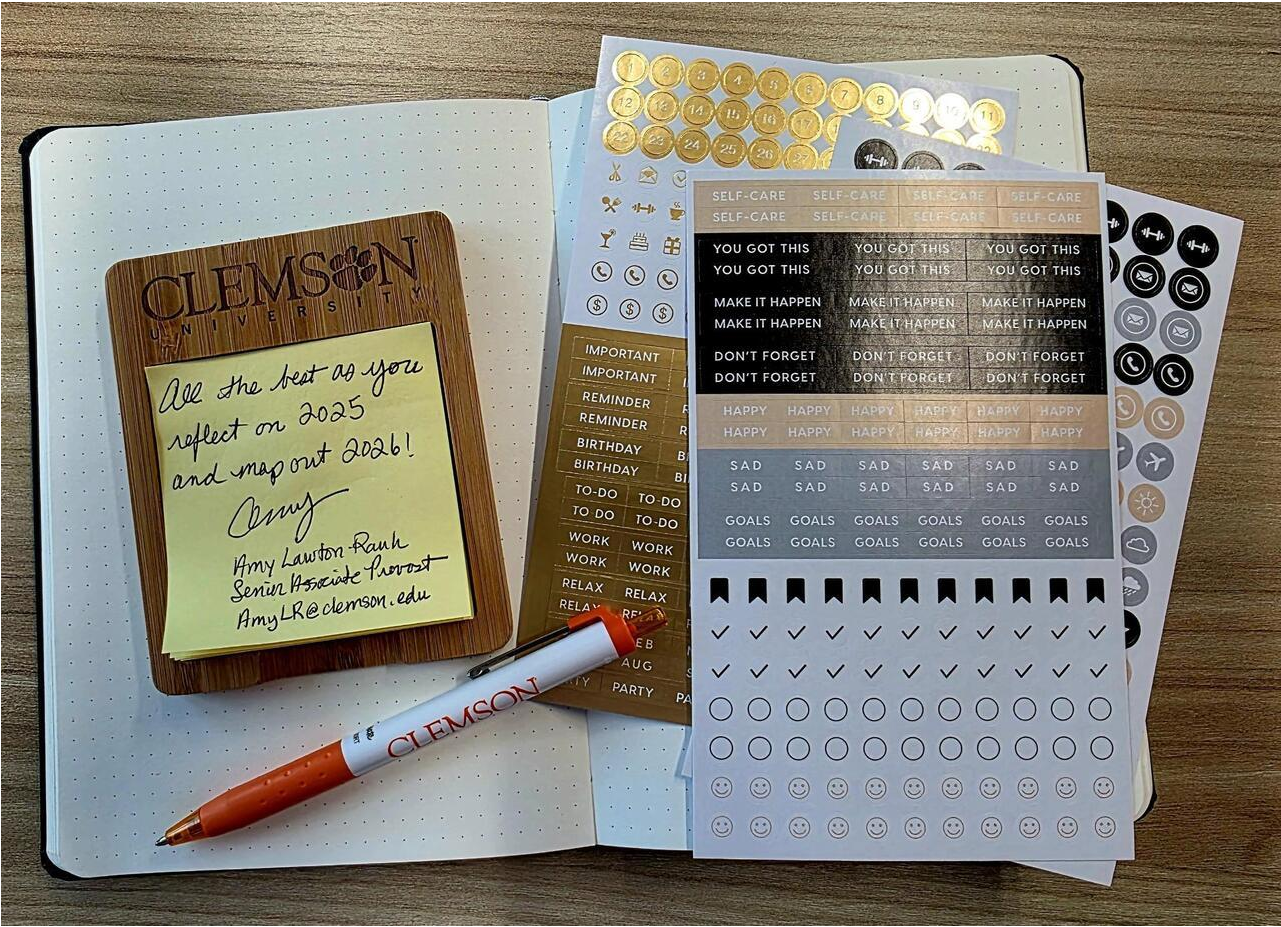 CLEMSON
UNIVERSITY
All the best as you
reflect on 2025
and map out 2026!
Amy
Amy Lawton-Rauh
Senior Associate Provost
AmyLR@clemson.edu
CLEMSON
1 2 3 4 5 6 7 8 9 10 11
12 13 14 15 16 17
22 23 24 25 26 27
$ $ $
IMPORTANT
IMPORTANT
REMINDER
REMINDER
BIRTHDAY
BIRTHDAY
TO-DO TO-DO
TO-DO TO-DO
WORK WORK
WORK WORK
RELAX RELAX
RELAX RELAX
AUG
PARTY
SELF-CARE SELF-CARE SELF-CARE SELF-CARE
SELF-CARE SELF-CARE SELF-CARE SELF-CARE
YOU GOT THIS YOU GOT THIS YOU GOT THIS
YOU GOT THIS YOU GOT THIS YOU GOT THIS
MAKE IT HAPPEN MAKE IT HAPPEN MAKE IT HAPPEN
MAKE IT HAPPEN MAKE IT HAPPEN MAKE IT HAPPEN
DON'T FORGET DON'T FORGET DON'T FORGET
DON'T FORGET DON'T FORGET DON'T FORGET
HAPPY HAPPY HAPPY HAPPY HAPPY HAPPY
HAPPY HAPPY HAPPY HAPPY HAPPY HAPPY
SAD SAD SAD SAD SAD SAD
SAD SAD SAD SAD SAD SAD
GOALS GOALS GOALS GOALS GOALS GOALS
GOALS GOALS GOALS GOALS GOALS GOALS